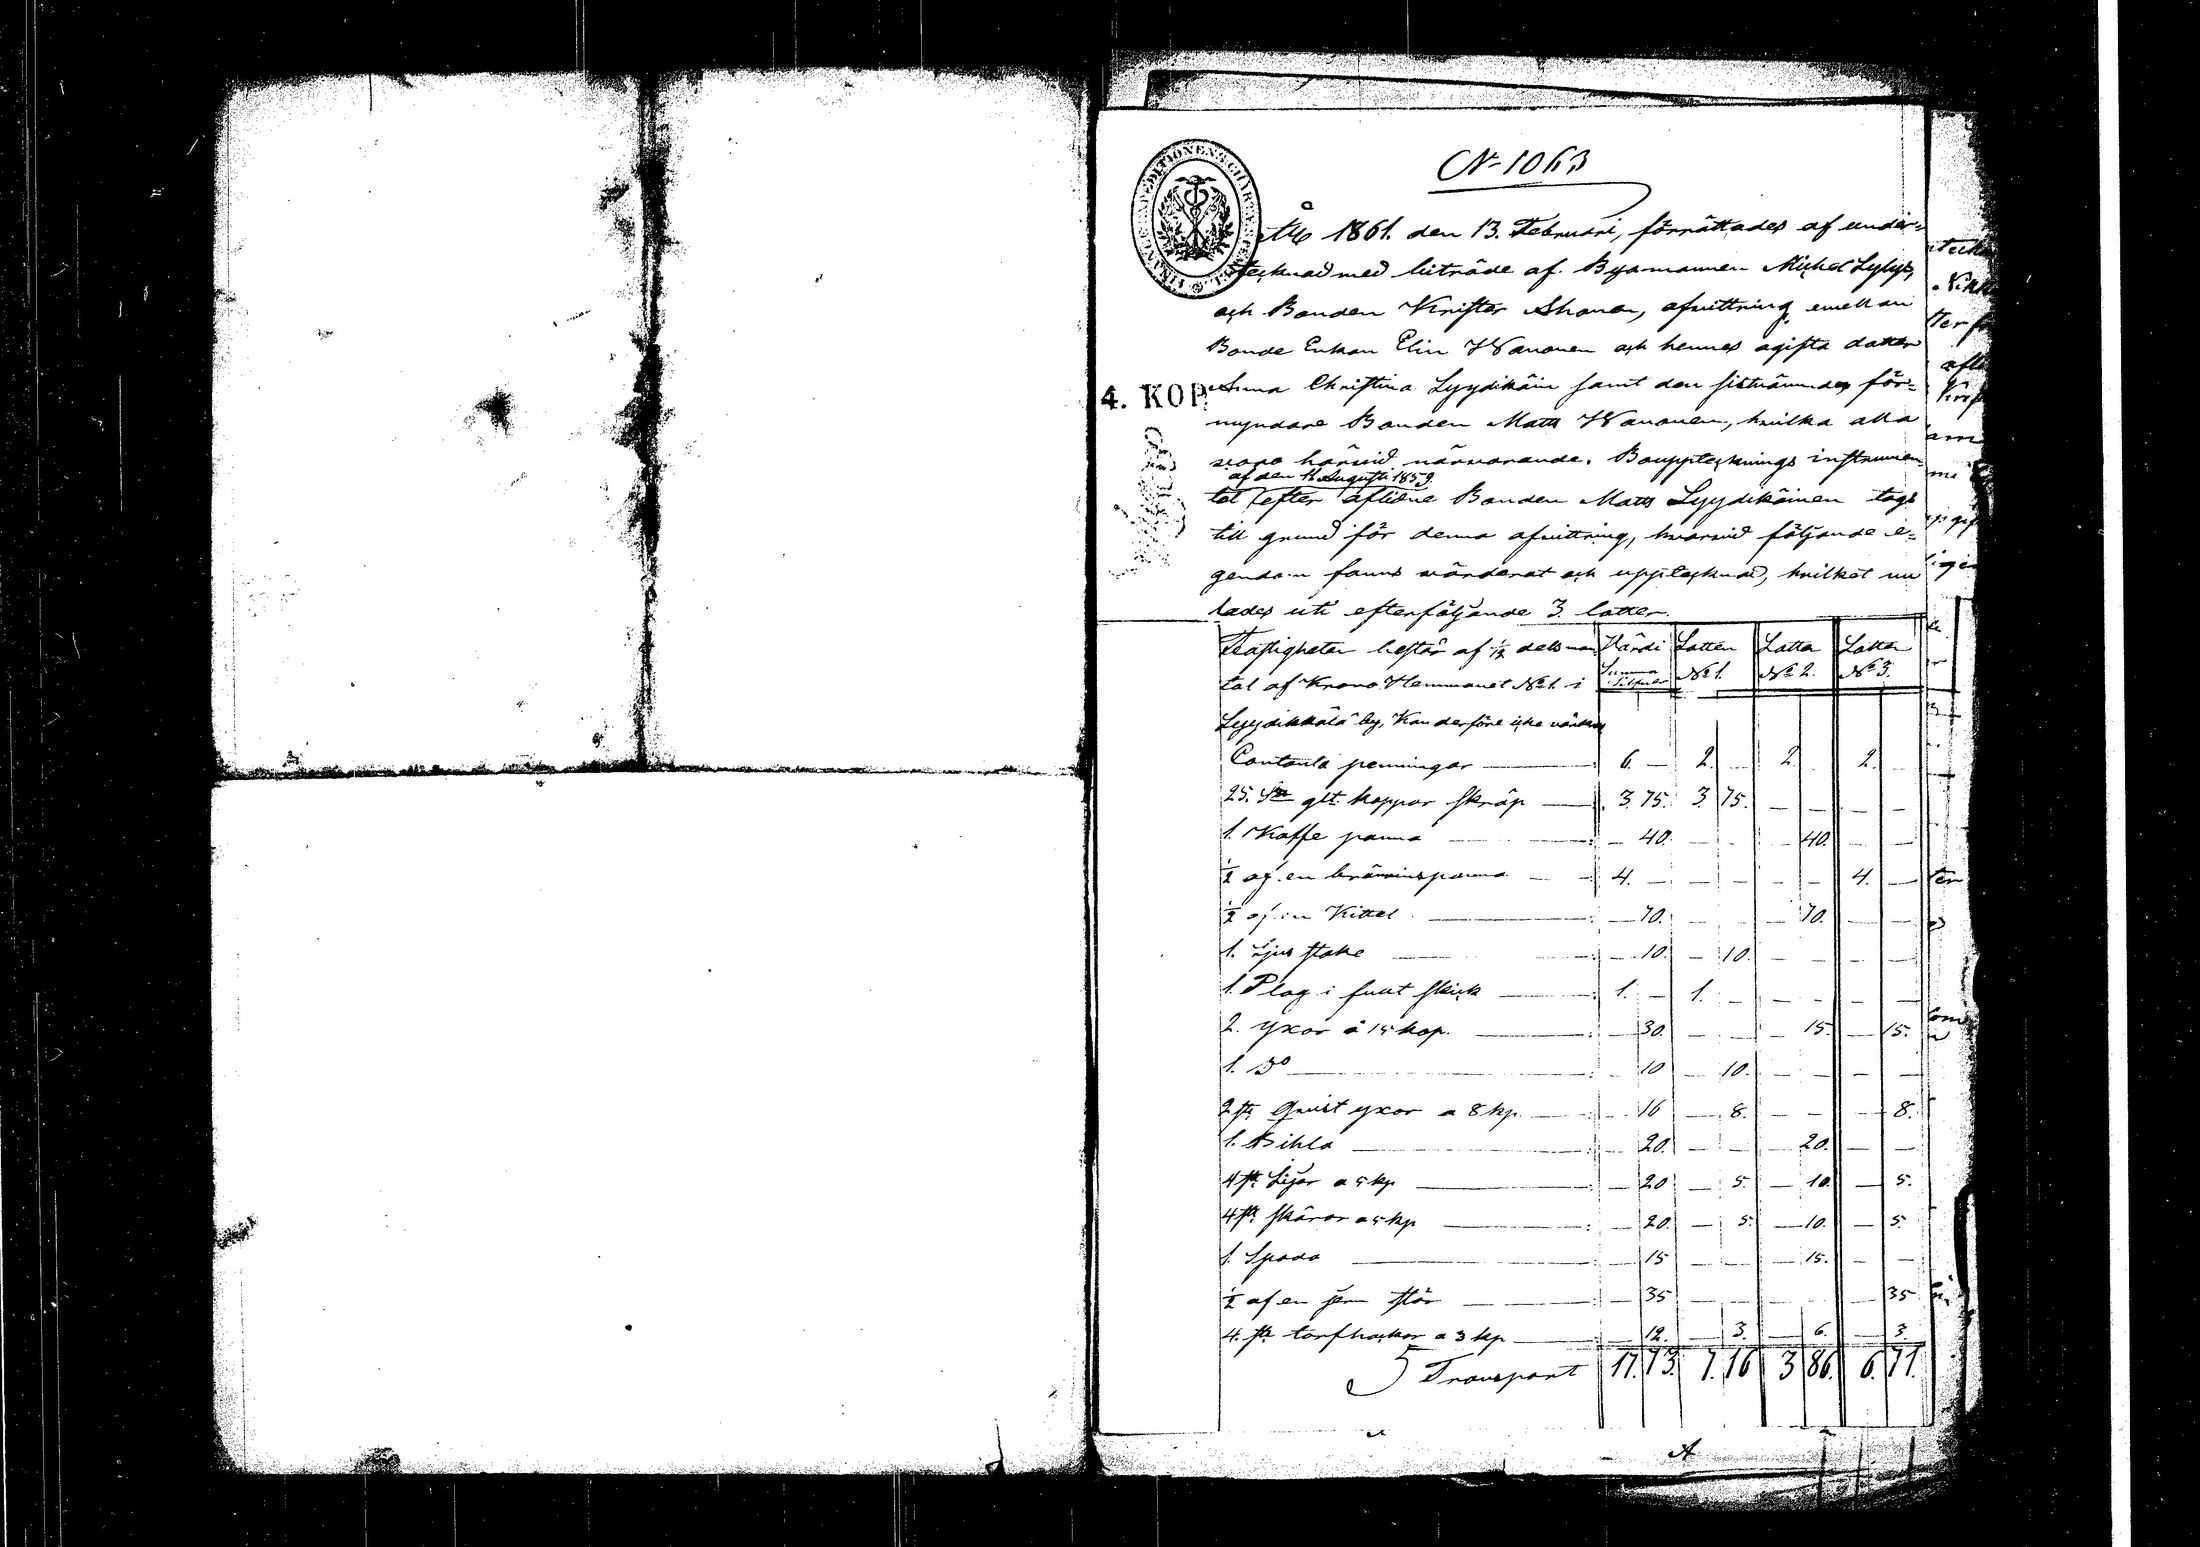 N 1063
År 1861. den 13. Februari, förrättades af under-
tecknad med biträde af Byamannen Michel Lylys,
och Bonden Krister Ahonen, afvittring emellan
Bonde Enkan Elin Wanonen och hennes ogifta dotter
4. KOP. Anna Christina Lyydikäin samt den sistnämndes för-
myndare Bonden Matts Wanonen, hvilka alla
voro härvid närvarande. Bouppteknings instrumen
af den 11 Augusti 1859
tet efter aflidne Bonden Matts Lyydikäinen togs
till grund för denna afvittring, hvarvid följande e-
gendom fanns värderat och upptecknad, hvilket nu
lades uti efterföljande 3 lotter.
Fastigheten består af 1/12 dels man Värdi Lotten Lotten Lotten
tal af Krono Hemmanet No 1. i Summa Silfver No 1. No 2. No 3.
Lyydikkälä by, Kan derföre icke värderas
Contanta penningar — 6. — 2. — 2. 2. —
25. glt. koppar skräp — 3. 75. 3 75. — — — —
1. Kaffe panna — — 40. — — 40. — —
1/2 af en brännvinspanna — — 4. — — — — — 4. —
1/2 af en Kittel — — 70. — — — 70. — —
1. Ljus stake — — 10. — 10. — — — —
1. Plog i fullt skick — 1. — 1. — — — — —
2. yxor á 15 kop. — — 30. — — — 15. — 15.
1. Do — — 10 — 10. — — — —
2 st. quist yxor a 8 kp. — — 16 — 8. — — — 8.
1. Bihla — — 20. — — — 20. — —
4 st. Lijar a 5 kp — — 20 — 5. — 10. — 5.
4 st. skäror a 5 kp — — 20. — 5. — 10. — 5.
1. Spada — — 15 — — — 15. — —
1/2 af en jern stör — — 35 — — — — — 35
4. st. torfhackor a 3 kp — — 12. — 3. — 6. — 3.
Transport 17. 73. 7. 16 3 86. 6. 71.